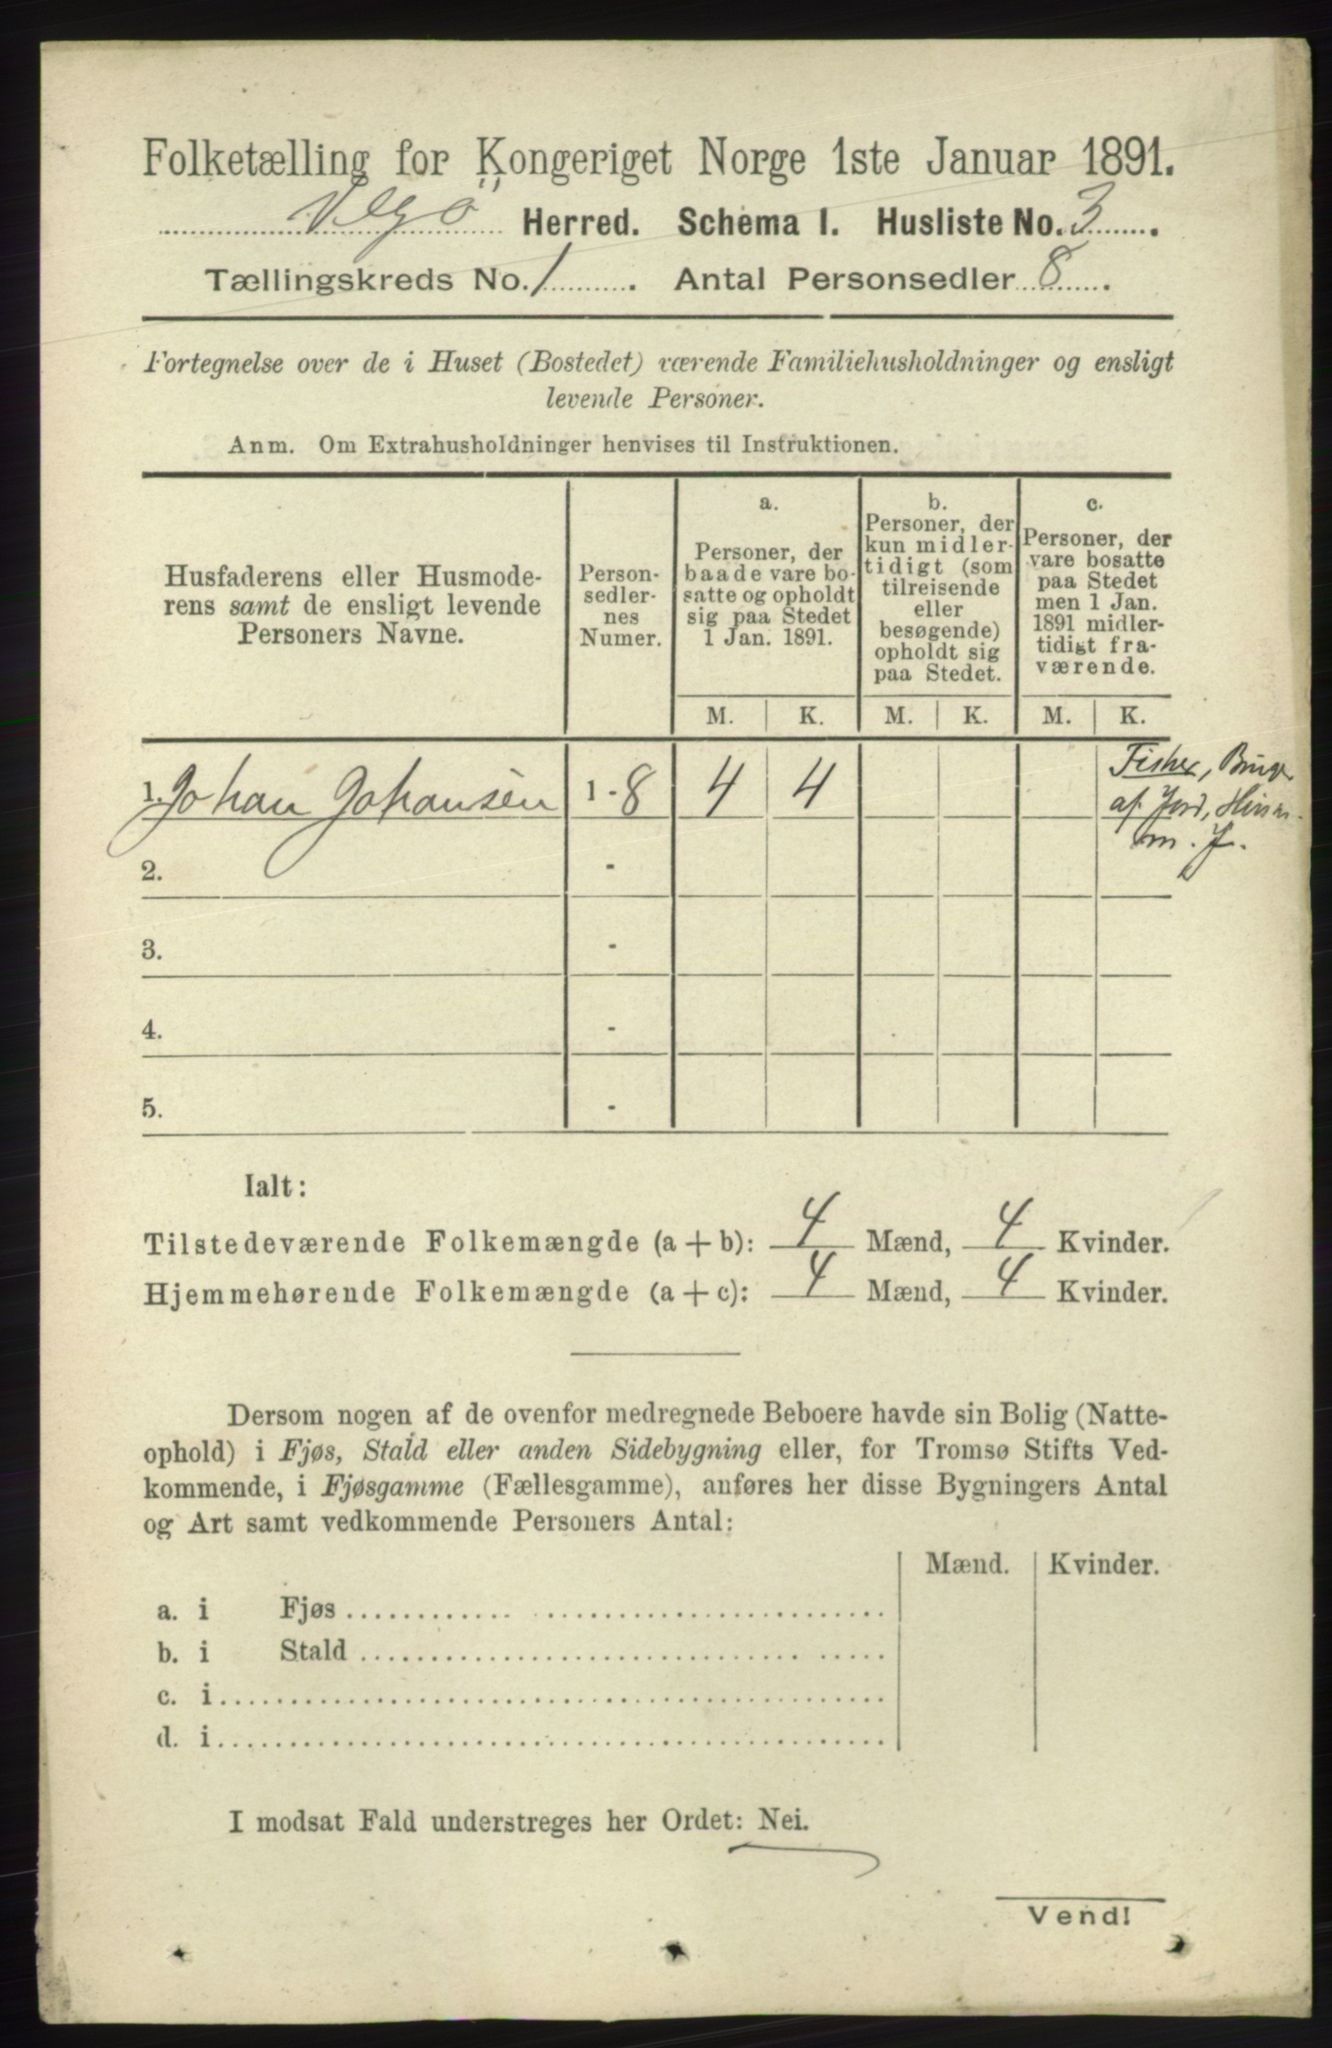 Folketælling for Kongeriget Norge 1ste Januar 1891.
Vegö Herred. Schema I. Husliste No. 3.
Tællingskreds No. 1. Antal Personsedler 8.
Fortegnelse over de i Huset (Bostedet) værende Familiehusholdninger og ensligt
levende Personer.
Anm. Om Extrahusholdninger henvises til Instruktionen.
Husfaderens eller Husmode-
rens samt de ensligt levende
Personers Navne.
Person-
sedler-
nes
Numer.
a.
Personer, der
baade vare bo-
satte og opholdt
sig paa Stedet
1 Jan. 1891.
b.
Personer, der
kun midler-
tidigt (som
tilreisende
eller
besøgende)
opholdt sig
paa Stedet.
c.
Personer, der
vare bosatte
paa Stedet
men 1 Jan.
1891 midler-
tidigt fra-
værende.
M. K. M. K. M. K.
1. Johan Johansen 1 - 8 4 4
Fisker, Brug
af Jord,
m. J.
2. -
3. -
4. -
5. -
Ialt:
Tilstedeværende Folkemængde (a + b): 4 Mænd, 4 Kvinder.
Hjemmehørende Folkemængde (a + c): 4 Mænd, 4 Kvinder.
Dersom nogen af de ovenfor medregnede Beboere havde sin Bolig (Natte-
ophold) i Fjøs, Stald eller anden Sidebygning eller, for Tromsø Stifts Ved-
kommende, i Fjøsgamme (Fællesgamme), anføres her disse Bygningers Antal
og Art samt vedkommende Personers Antal:
Mænd. Kvinder.
a. i Fjøs
b. i Stald
c. i
d. i
I modsat Fald understreges her Ordet: Nei.
Vend!